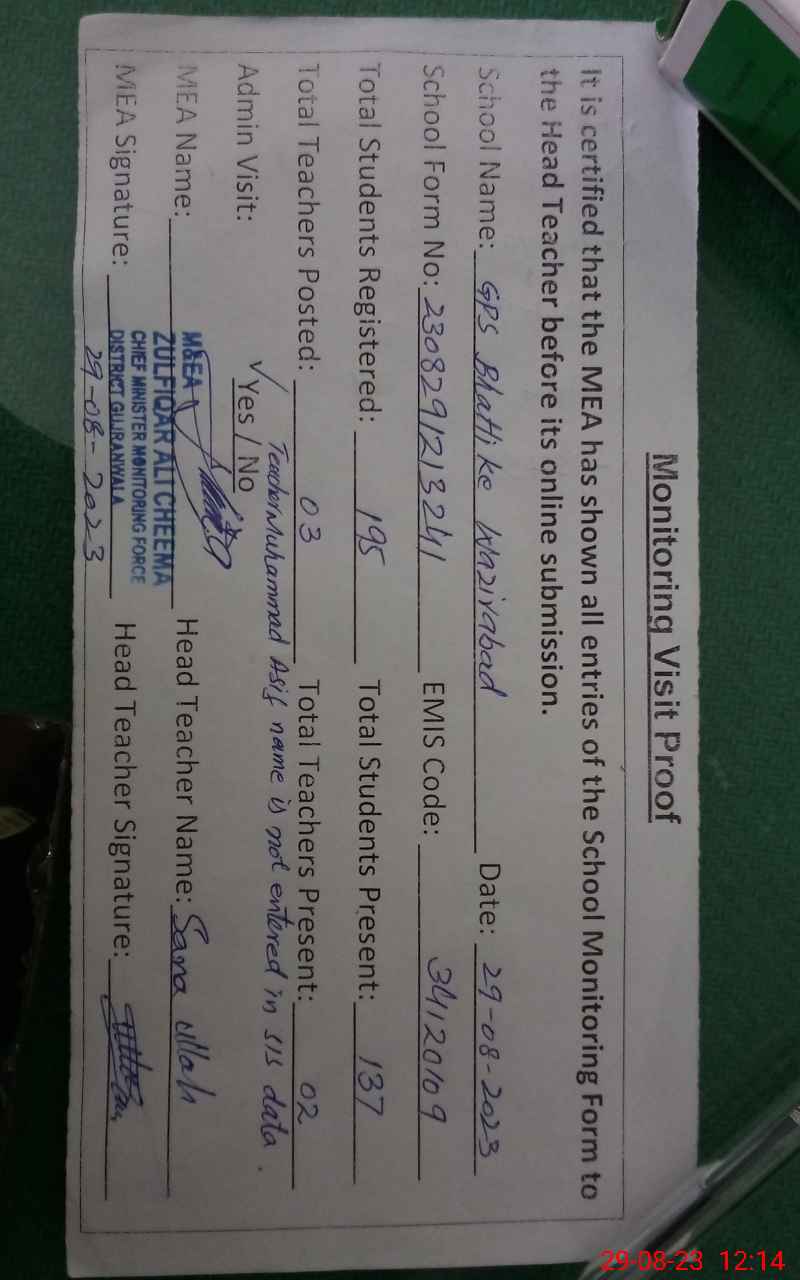 Monitoring Visit Proof
It is certified that the MEA has shown all entries of the School Monitoring Form to
the Head Teacher before its online submission.
School Name: GPS Bhatti ke Wazirabad Date: 29-08-2023
School Form No: 2308291213241 EMIS Code: 34120109
Total Students Registered: 195 Total Students Present: 137
Total Teachers Posted: 03 Total Teachers Present: 02
Teacher Muhammad Asif name is not entered in SIS data.
Admin Visit: ✓ Yes / No
M&EA
MEA Name: ZULFIQAR ALI CHEEMA Head Teacher Name: Sana Ullah
CHIEF MINISTER MONITORING FORCE
MEA Signature: DISTRICT GUJRANWALA Head Teacher Signature:
29-08-2023
29-08-23 12:14